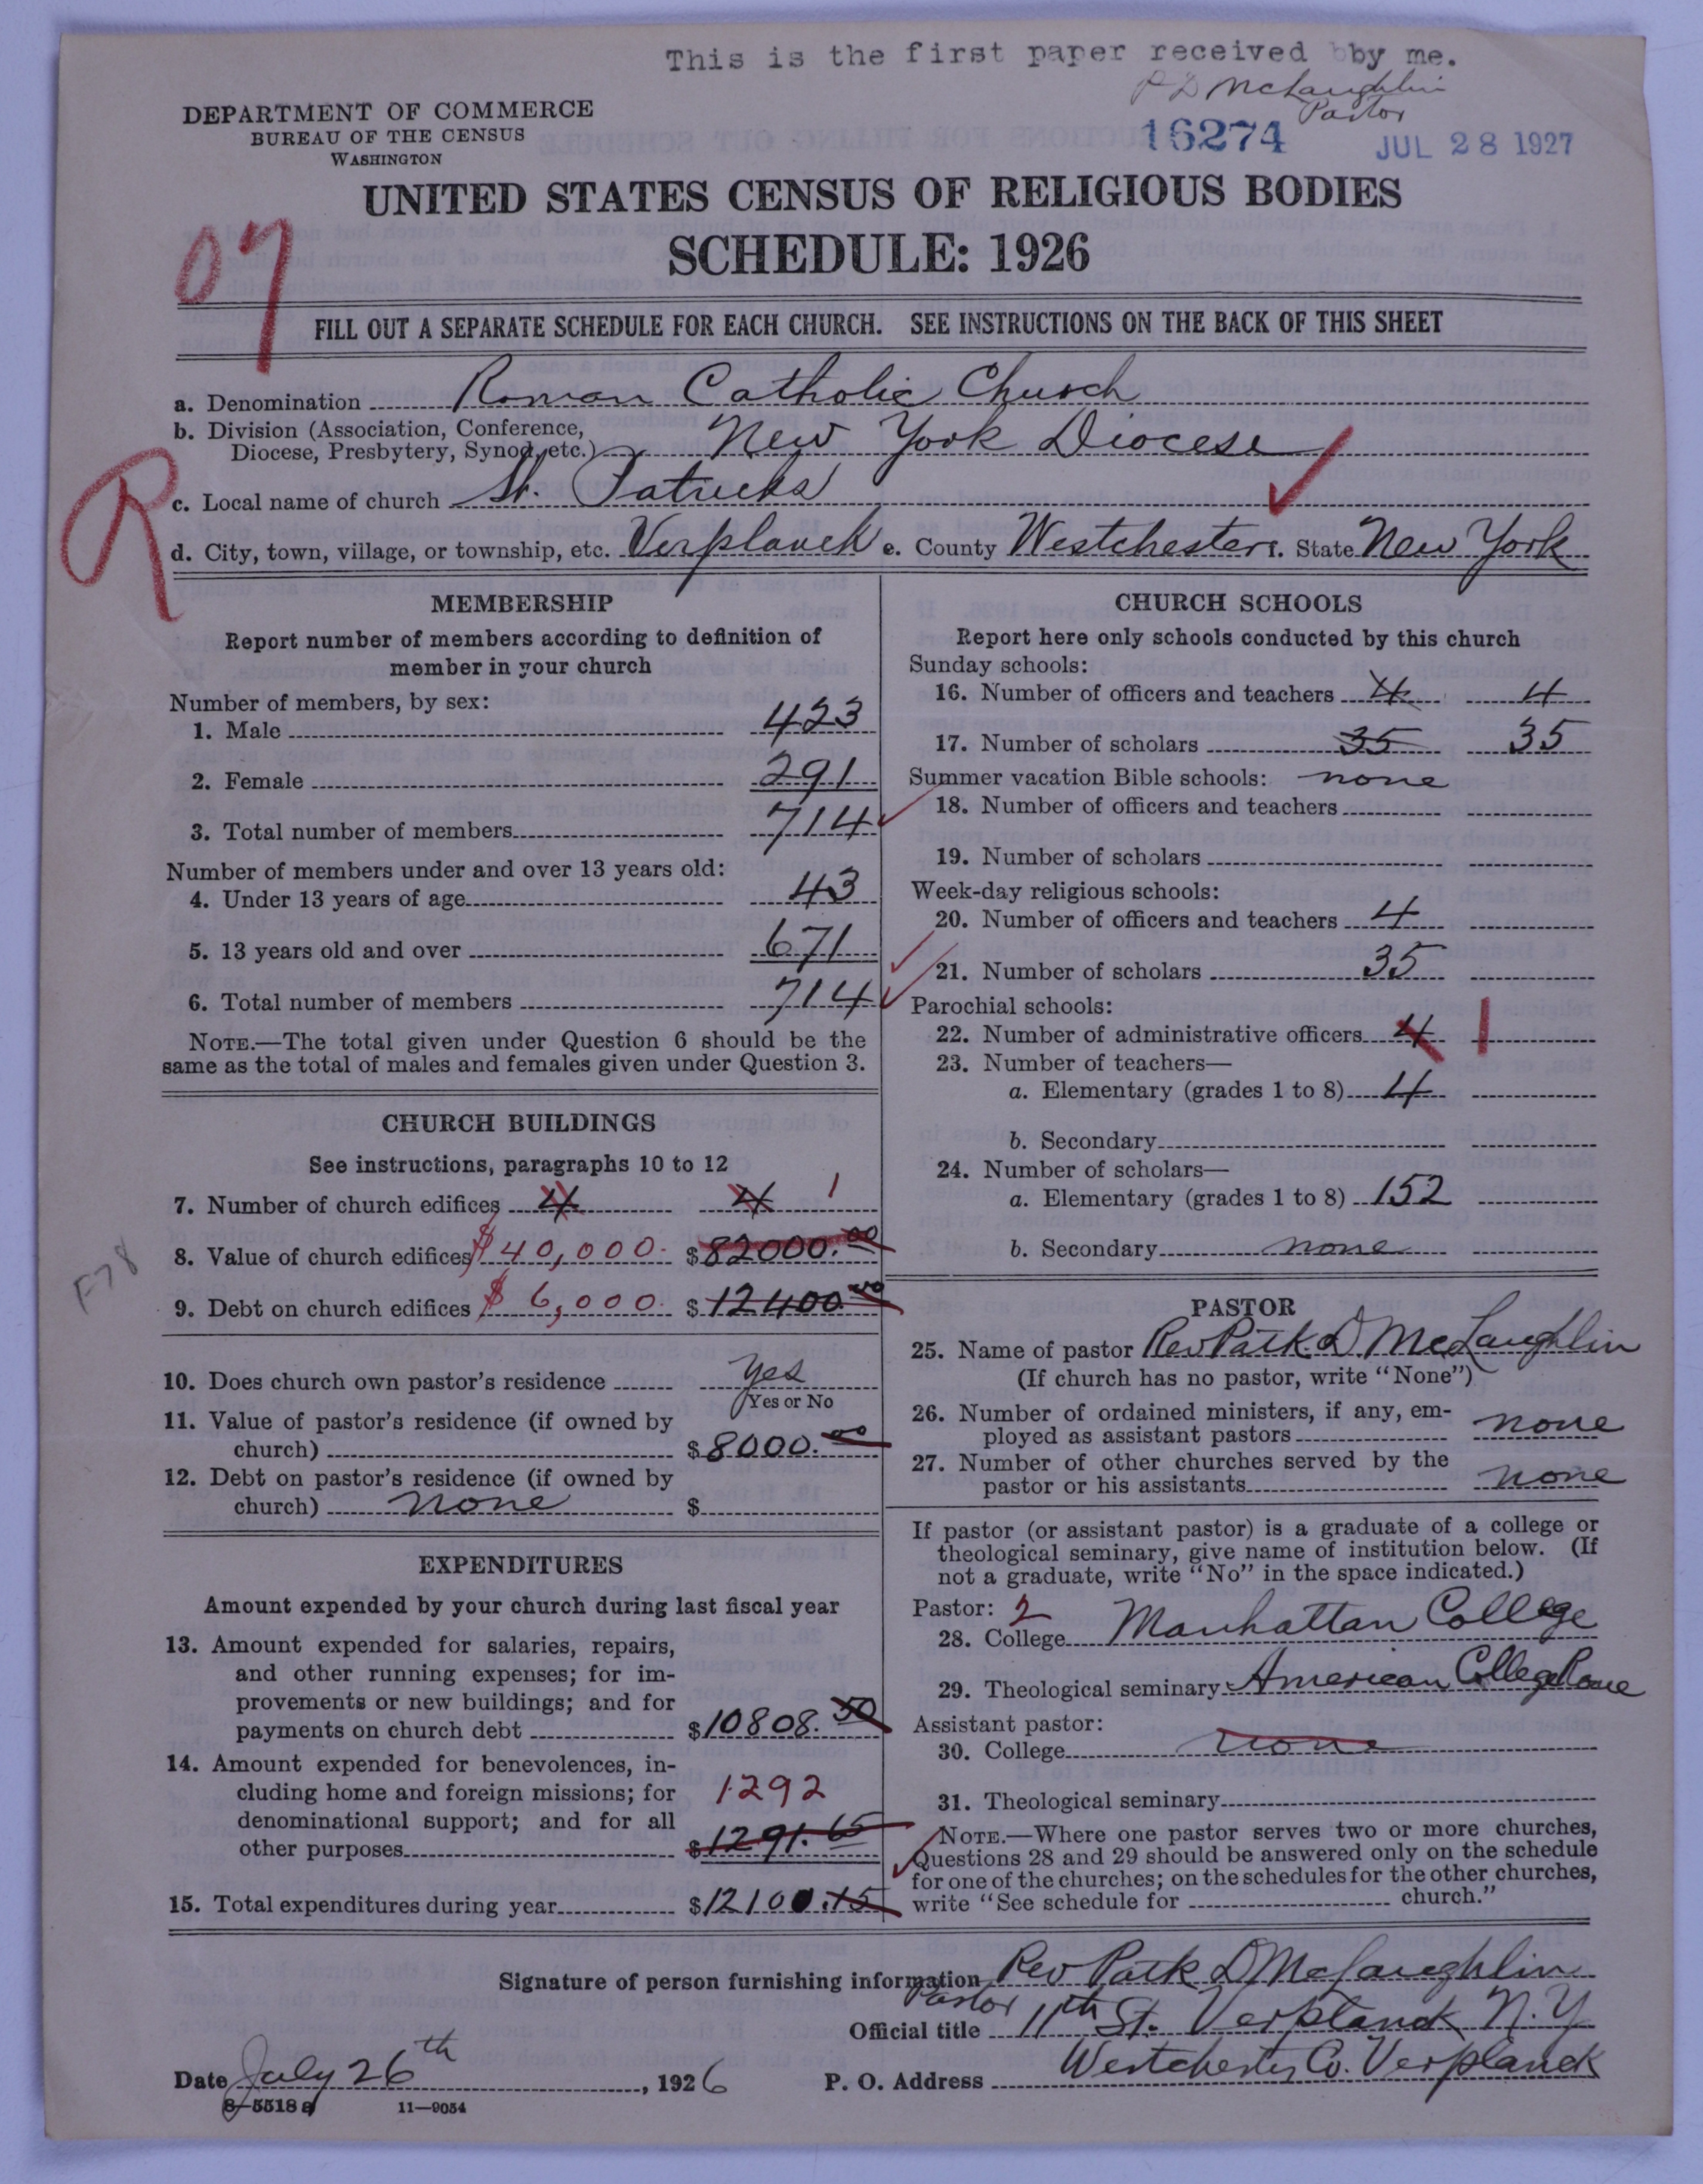 This is the first paper received by me.
P D McLaughlin
Pastor
DEPARTMENT OF COMMERCE
BUREAU OF THE CENSUS
WASHINGTON
16274
JUL 28 1927
UNITED STATES CENSUS OF RELIGIOUS BODIES
SCHEDULE: 1926
07
FILL OUT A SEPARATE SCHEDULE FOR EACH CHURCH. SEE INSTRUCTIONS ON THE BACK OF THIS SHEET
a. Denomination Roman Catholic Church
b. Division (Association, Conference,
Diocese, Presbytery, Synod, etc.) New York Diocese
R
c. Local name of church St. Patricks
d. City, town, village, or township, etc. Verplanck e. County Westchester f. State New York
MEMBERSHIP
Report number of members according to definition of
member in your church
Number of members, by sex:
1. Male 423
2. Female 291
3. Total number of members 714
Number of members under and over 13 years old:
4. Under 13 years of age 43
5. 13 years old and over 671
6. Total number of members 714
NOTE.—The total given under Question 6 should be the
same as the total of males and females given under Question 3.
CHURCH BUILDINGS
See instructions, paragraphs 10 to 12
7. Number of church edifices 4 4 1
8. Value of church edifices $40,000. $82000.00
F78
9. Debt on church edifices $6,000. $12400.00
10. Does church own pastor's residence yes
Yes or No
11. Value of pastor's residence (if owned by
church) $8000.00
12. Debt on pastor's residence (if owned by
church) none $
EXPENDITURES
Amount expended by your church during last fiscal year
13. Amount expended for salaries, repairs,
and other running expenses; for im-
provements or new buildings; and for
payments on church debt $10808.50
14. Amount expended for benevolences, in-
cluding home and foreign missions; for 1292
denominational support; and for all
other purposes $1291.65
15. Total expenditures during year $12100.15
CHURCH SCHOOLS
Report here only schools conducted by this church
Sunday schools:
16. Number of officers and teachers 4 4
17. Number of scholars 35 35
Summer vacation Bible schools: none
18. Number of officers and teachers
19. Number of scholars
Week-day religious schools:
20. Number of officers and teachers 4
21. Number of scholars 35
Parochial schools:
22. Number of administrative officers 4 1
23. Number of teachers—
a. Elementary (grades 1 to 8) 4
b. Secondary
24. Number of scholars—
a. Elementary (grades 1 to 8) 152
b. Secondary none
PASTOR
25. Name of pastor Rev Patk. D McLaughlin
(If church has no pastor, write "None")
26. Number of ordained ministers, if any, em-
ployed as assistant pastors none
27. Number of other churches served by the
pastor or his assistants none
If pastor (or assistant pastor) is a graduate of a college or
theological seminary, give name of institution below. (If
not a graduate, write "No" in the space indicated.)
Pastor: 2
28. College Manhattan College
29. Theological seminary American College Rome
Assistant pastor:
30. College none
31. Theological seminary
NOTE.—Where one pastor serves two or more churches,
Questions 28 and 29 should be answered only on the schedule
for one of the churches; on the schedules for the other churches,
write "See schedule for church."
Signature of person furnishing information Rev Patk D McLaughlin
Pastor
Official title 11th St. Verplanck N.Y
Date July 26th, 1926 P. O. Address Westchester Co. Verplanck
8-5518a 11—9054